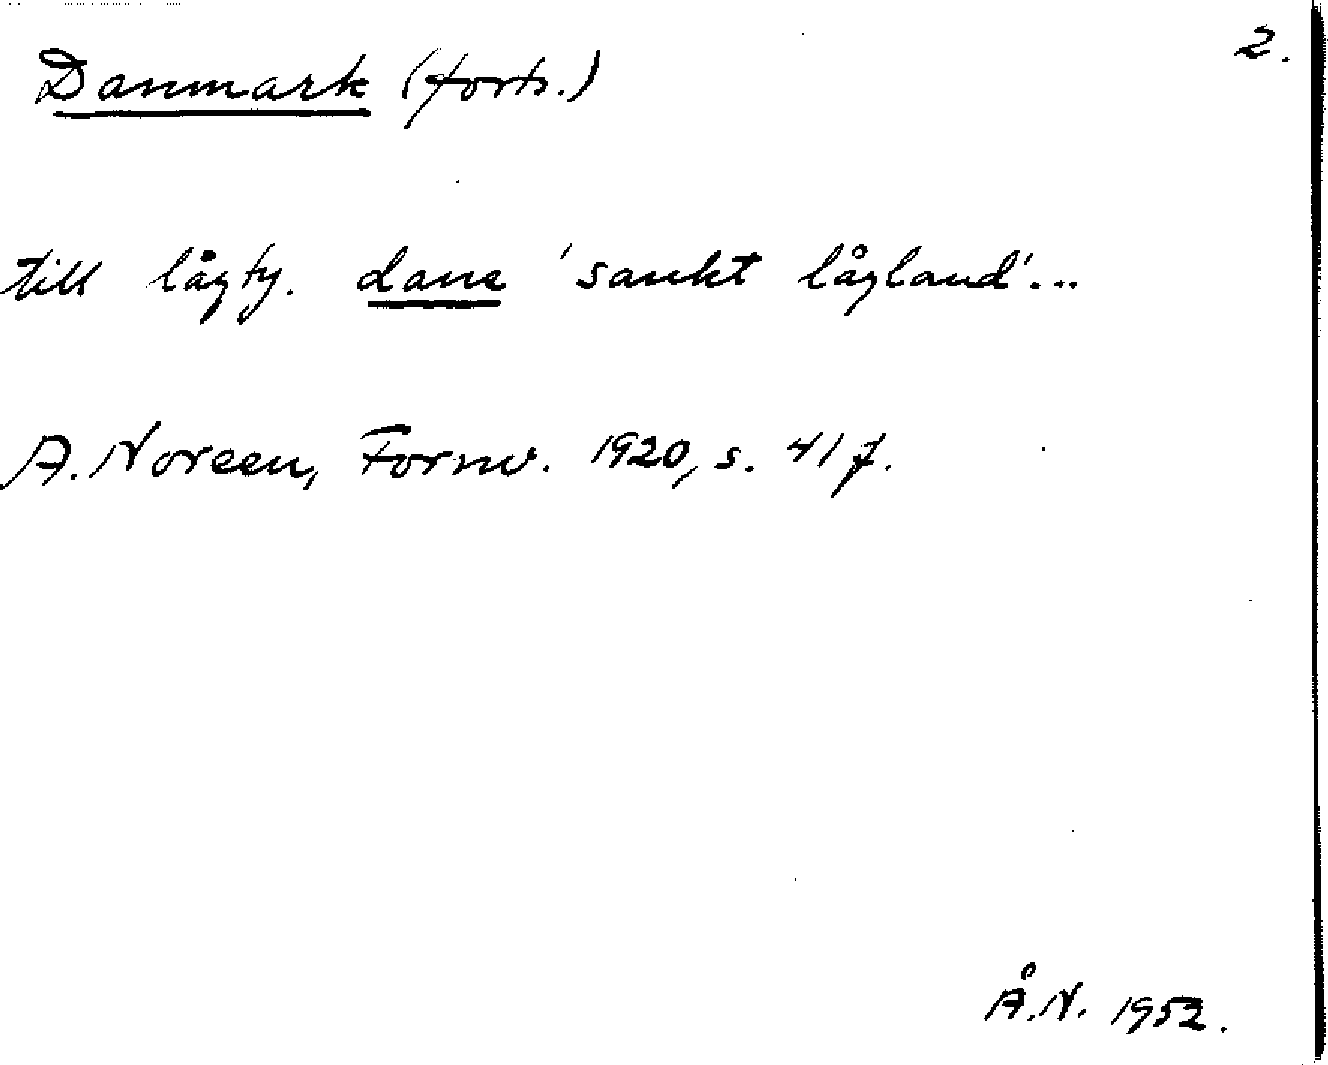 2.
Danmark (forts.)
till lågty. dane 'sankt lågland'...
A. Noreen, Fornv. 1920, s. 41 f.
Å.N. 1952.